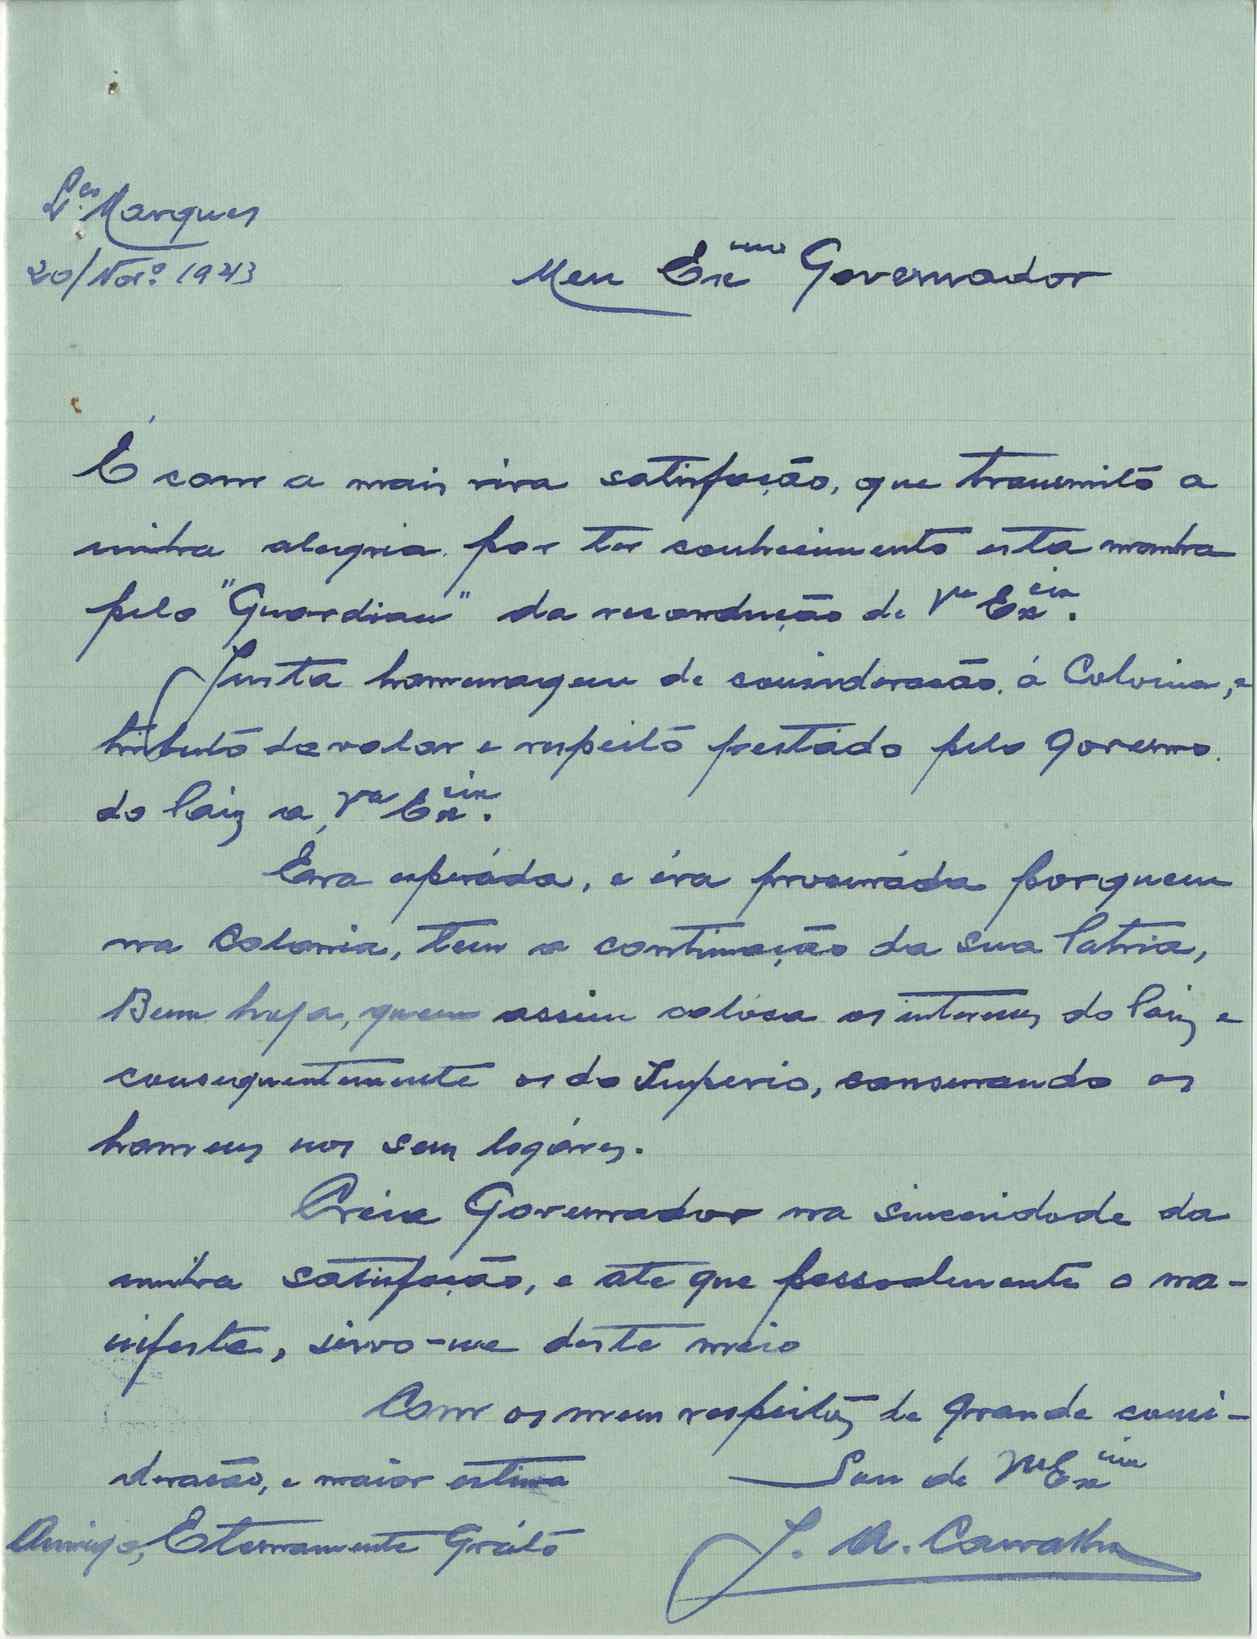 L.ço Marques
20/Nov.º 1943
Meu Exmo Governador
É com a mais viva satisfação, que transmito a
minha alegria por ter conhecimento esta manha
pelo "Guardian" da recondução de Va Excia.
Justa homenagem de consideração á Colonia, e
tributo de valor e respeito prestádo pelo governo
do Paiz a Va Excia.
Éra esperáda, e éra procuráda por quem
na Colonia, tem a continuação da sua Patria,
Bem haja, quem assim colóca os interesses do Paiz e
consequentemente os do Imperio, conservando os
homens nos seus logáres.
Creia Governador na sinceridade da
minha satisfação, e ate que pessoalmente o ma-
nifeste, sirvo-me deste meio
Com os meus respeitos de grande consi-
deração, e maior estima
Sou de Va Excia
Amigo, Eternamente Gráto
J. A. Carvalho